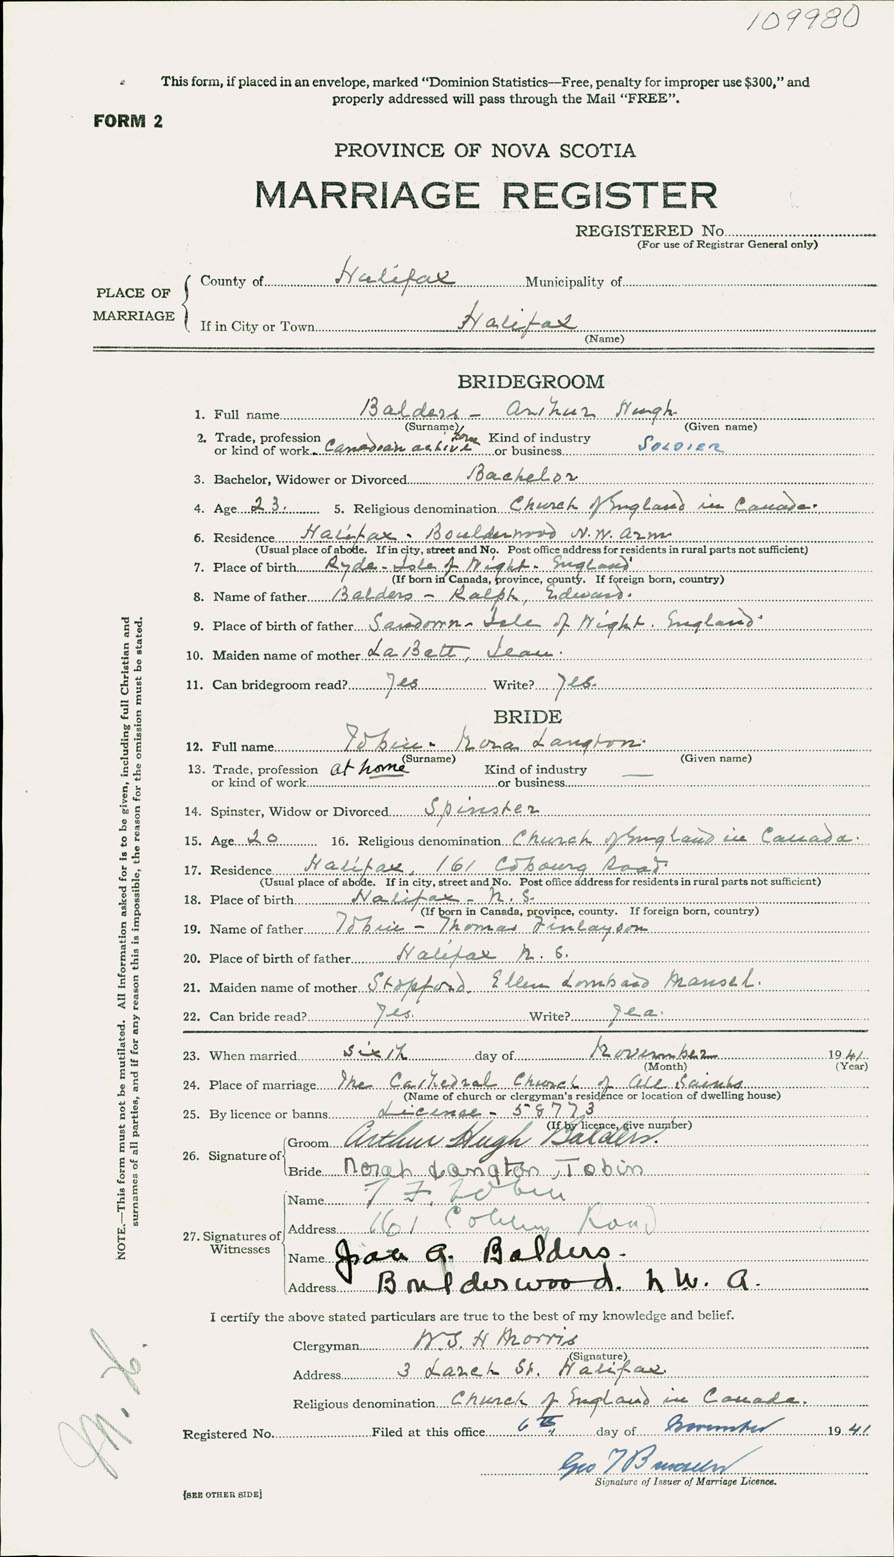 109980
This form, if placed in an envelope, marked “Dominion Statistics—Free, penalty for improper use $300,” and
properly addressed will pass through the Mail “FREE”.
FORM 2
PROVINCE OF NOVA SCOTIA
MARRIAGE REGISTER
REGISTERED No.
(For use of Registrar General only)
PLACE OF MARRIAGE
County of Halifax Municipality of
If in City or Town Halifax
(Name)
BRIDEGROOM
1. Full name Balders - Arthur Hugh
(Surname) (Given name)
2. Trade, profession or kind of work Canadian active Kind of industry or business SOLDIER
3. Bachelor, Widower or Divorced Bachelor
4. Age 23. 5. Religious denomination Church of England in Canada.
6. Residence Halifax - Boulderwood N.W. Arm
(Usual place of abode. If in city, street and No. Post office address for residents in rural parts not sufficient)
7. Place of birth Ryde - Isle of Wight - England
(If born in Canada, province, county. If foreign born, country)
8. Name of father Balders - Ralph, Edward.
9. Place of birth of father Sandown - Isle of Wight. England.
10. Maiden name of mother La Bett, Jean.
11. Can bridegroom read? Yes Write? Yes.
BRIDE
12. Full name Tobin - Nora Langton.
(Surname) (Given name)
13. Trade, profession or kind of work at home Kind of industry or business —
14. Spinster, Widow or Divorced Spinster
15. Age 20 16. Religious denomination Church of England in Canada.
17. Residence Halifax, 161 Cobourg Road
(Usual place of abode. If in city, street and No. Post office address for residents in rural parts not sufficient)
18. Place of birth Halifax - N. S.
(If born in Canada, province, county. If foreign born, country)
19. Name of father Tobin - Thomas Finlayson
20. Place of birth of father Halifax N. S.
21. Maiden name of mother Stopford, Ellen Lombard Mansel.
22. Can bride read? Yes. Write? Yes.
23. When married sixth day of November 1941
(Month) (Year)
24. Place of marriage The Cathedral Church of All Saints
(Name of church or clergyman's residence or location of dwelling house)
25. By licence or banns License - 58773
(If by licence, give number)
26. Signature of
Groom Arthur Hugh Balders.
Bride Norah Langton Tobin
27. Signatures of Witnesses
Name T F. Tobin
Address 161 Coburg Road
Name Jean A. Balders.
Address Boulderwood. N W. A.
I certify the above stated particulars are true to the best of my knowledge and belief.
Clergyman W. S. H Morris
(Signature)
Address 3 Larch St. Halifax
Religious denomination Church of England in Canada.
Registered No. Filed at this office 6th day of November 1941
Geo T
Signature of Issuer of Marriage Licence.
[SEE OTHER SIDE]
NOTE.—This form must not be mutilated. All information asked for is to be given, including full Christian and
surnames of all parties, and if for any reason this is impossible, the reason for the omission must be stated.